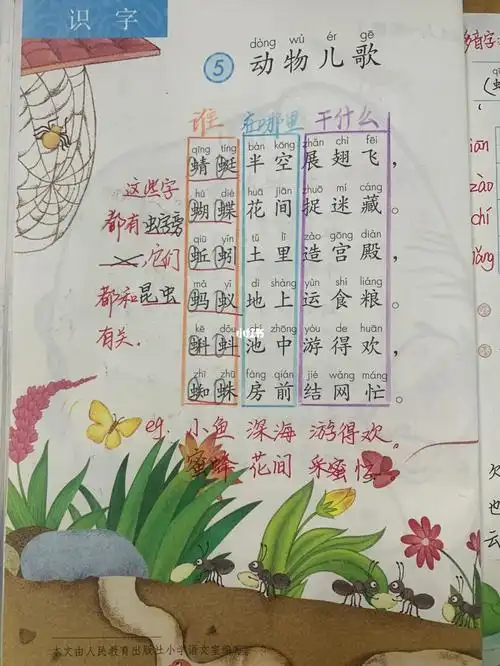 识字
dòng wù ér gē
5 动物儿歌
谁 在哪里 干什么
qīng tíng bàn kōng zhǎn chì fēi
蜻蜓半空展翅飞，
hú dié huā jiān zhuō mí cáng
蝴蝶花间捉迷藏。
qiū yǐn tǔ lǐ zào gōng diàn
蚯蚓土里造宫殿，
mǎ yǐ dì shàng yùn shí liáng
蚂蚁地上运食粮。
kē dǒu chí zhōng yóu de huān
蝌蚪池中游得欢，
zhī zhū fáng qián jié wǎng máng
蜘蛛房前结网忙。
这些字
都有虫字旁
它们
都和昆虫
有关.
eg. 小鱼 深海 游得欢。
蜜蜂 花间 采蜜忙
小红书
本文由人民教育出版社小学语文室编写
多音字